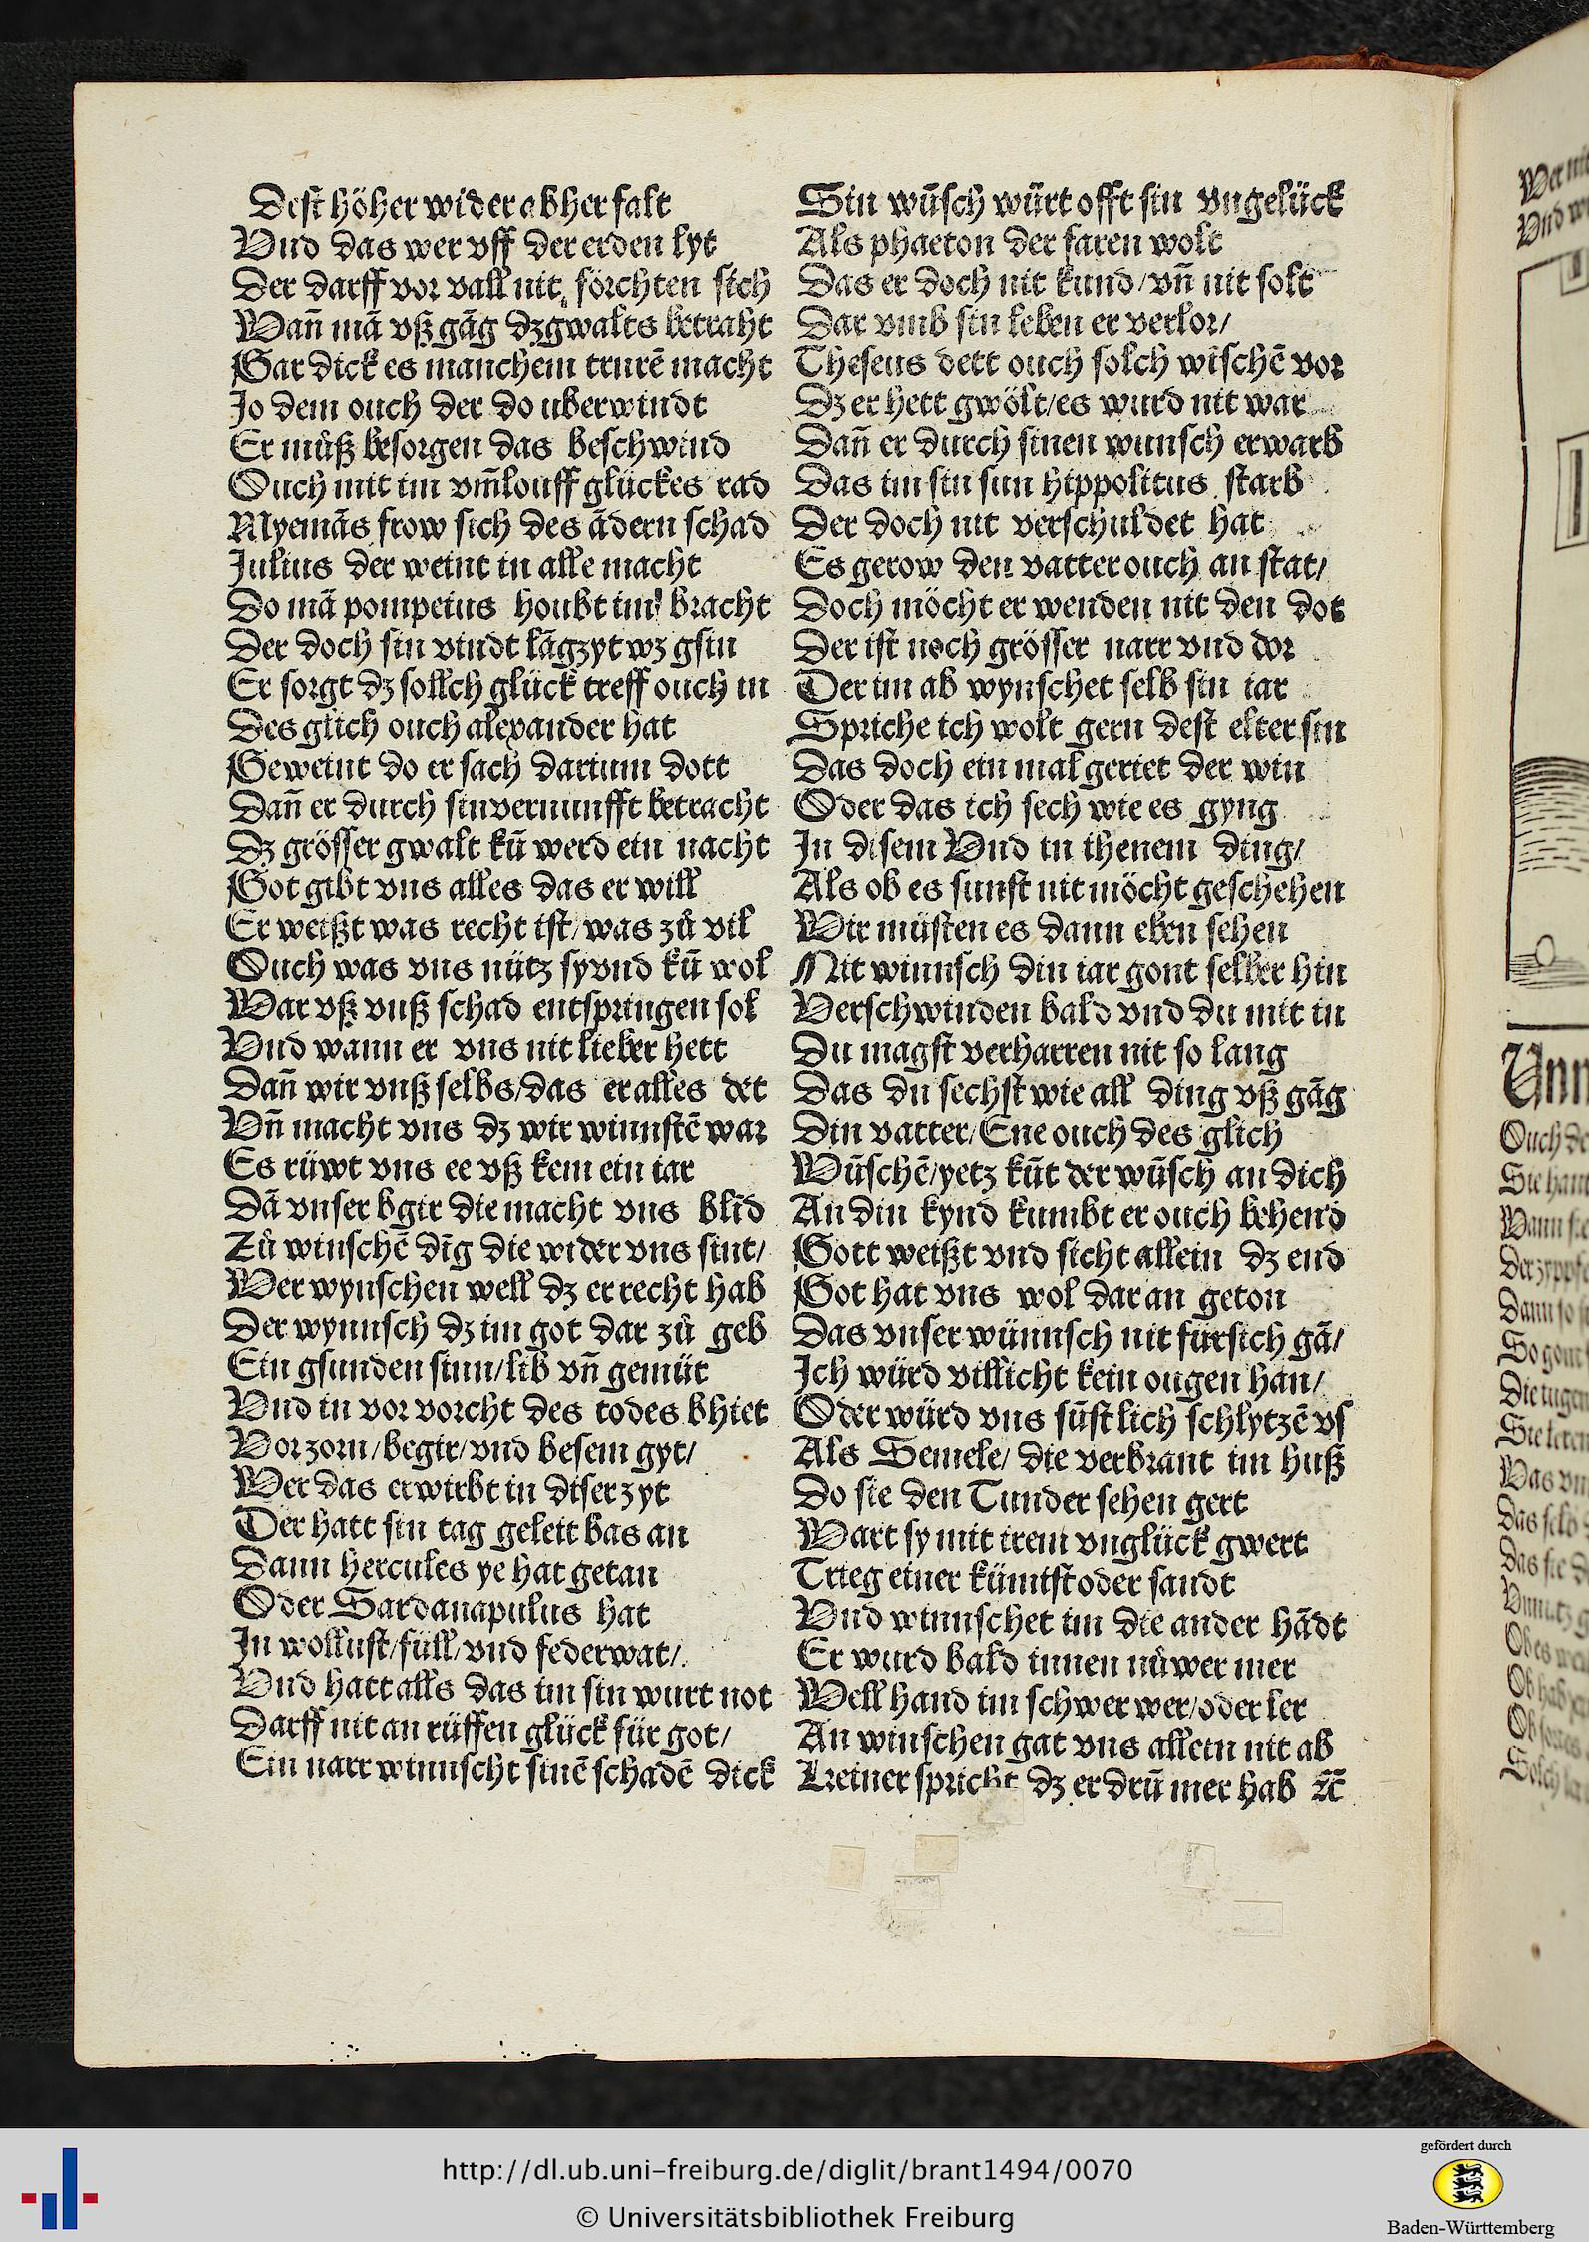 Dest höher wider abher falt
Vnd das wer vff der erden lyt
Der darff vor vall nit, förchten sich
Wañ mā vß gāg dz gwalts betraht
Gar dick es manchem trurē macht
Jo dem ouch der do uberwindt
Er můß besorgen das beschwind
Ouch mit im vm̄louff glückes rad
Nyemās frow sich des ādern schad
Julius der weint in alle macht
Do mā pompeius houbt im bracht
Der doch sin vindt lāgzyt wz gsin
Er sorgt dz sollch glück treff ouch in
Des glich ouch alexander hat
Geweint do er sach darium dott
Dañ er durch sin vernunfft betracht
Dz grösser gwalt kū werd ein nacht
Got gibt vns alles das er will
Er weißt was recht ist/ was zů vil
Ouch was vns nütz sy vnd kū wol
War vß vnß schad entspringen sol
Vnd wann er vns nit lieber hett
Dañ wir vnß selbs/das er alles det
Vñ macht vns dz wir winnstē war
Es rüwt vns ee vß kem ein iar
Dā vnser bgir die macht vns blīd
Zů winschē dīg die wider vns sint/
Wer wynschen well dz er recht hab
Der wynnsch dz im got dar zů geb
Ein gsunden sinn/lib vñ gemüt
Vnd in vor vorcht des todes bhiet
Vor zorn/begir/vnd besem gyt/
Wer das erwirbt in diser zyt
Der hatt sin tag geleit bas an
Dann hercules ye hat getan
Oder Sardanapulus hat
In wollust/füll/vnd federwat/
Vnd hatt alls das im sin wurt not
Darff nit an rüffen glück für got/
Ein narr winnscht sinē schadē dick
Sin wūsch würt offt sin vngelück
Als phaeton der faren wolt
Das er doch nit kund/vñ nit solt
Dar vmb sin leben er verlor/
Theseus dett ouch solch wischē vor
Dz er hett gwölt/es wurd nit war
Dañ er durch sinen wunsch erwarb
Das im sin sun hippolitus starb
Der doch nit verschuldet hat
Es gerow den vatter ouch an stat/
Doch möcht er wenden nit den dot
Der ist noch grösser narr vnd dor
Der im ab wynschet selb sin iar
Spriche ich wolt gern dest elter sin
Das doch ein mal geriet der win
Oder das ich sech wie es gyng
In disem Vnd in thenem ding/
Als ob es sunst nit möcht geschehen
Wir müsten es dann eben sehen
Nit winnsch din iar gont selber hin
Verschwinden bald vnd du mit in
Du magst verharren nit so lang
Das du sechst wie all ding vß gāg
Din vatter/Ene ouch des glich
Wūschē/yetz kūt der wūsch an dich
An din kynd kumbt er ouch behend
Gott weißt vnd sicht allein dz end
Got hat vns wol dar an geton
Das vnser wünnsch nit fürsich gā/
Ich würd villicht kein ougen han/
Oder würd vns sūstlich schlytzē vs
Als Semele/ die verbrant im huß
Do sie den Tunder sehen gert
Wart sy mit irem vnglück gwert
Trieg einer kümtst oder sandt
Vnd winnschet im die ander hādt
Er wurd bald innen nůwer mer
Well hand im schwer wer/oder ler
An winschen gat vns allein nit ab
Keiner spricht dz er drū mer hab ꝛc̄
Wer
Vnd
Vnn
Ouch
Sie
Wann
Der
Dann so
So gont
Die tugen
Sie leren
Was
Das
Das sie
Vnnutz
Ob es
Ob hab
Ob
Solch
http://dl.ub.uni-freiburg.de/diglit/brant1494/0070
© Universitätsbibliothek Freiburg
gefördert durch
Baden-Württemberg